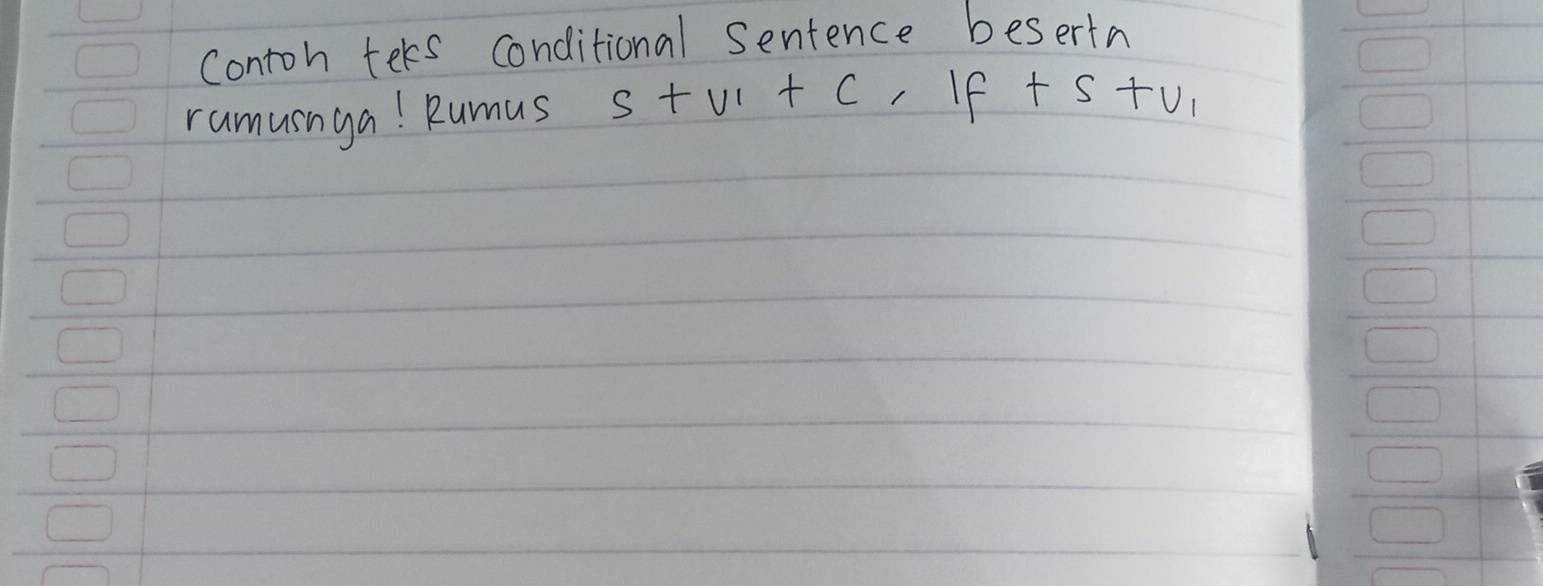 Contoh teks Conditional Sentence beserta
rumusnya! Rumus S + V1 + C, If + S + V1